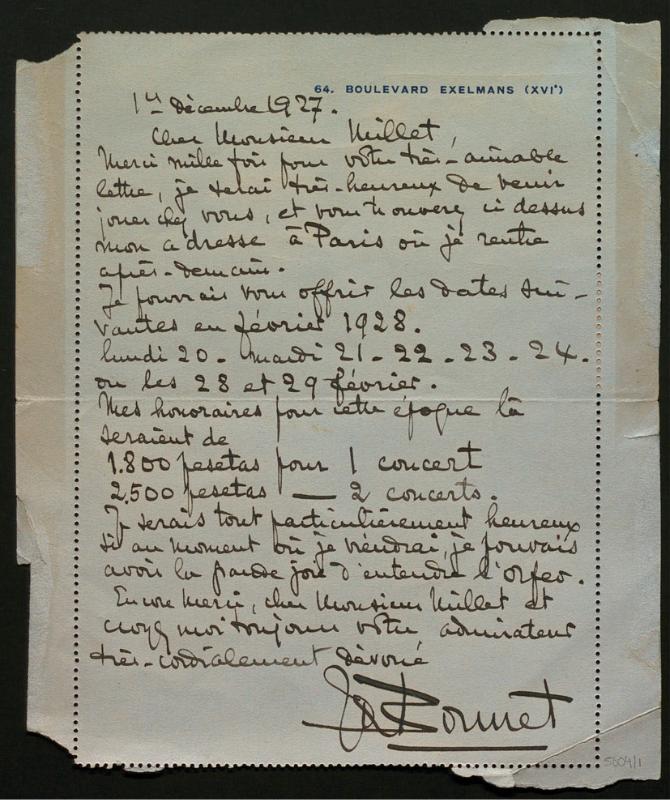 64. BOULEVARD EXELMANS (XVIe)
1er Décembre 1927.
Cher Monsieur Millet,
Merci mille fois pour votre très-aimable
lettre, je serai très-heureux de venir
jouer chez vous, et vous trouverez ci dessus
mon adresse à Paris où je rentre
après-demain.
Je pourrais vous offrir les dates sui-
vantes en février 1928.
lundi 20 - mardi 21 - 22 - 23 - 24.
ou les 28 et 29 février.
Mes honoraires pour cette époque là
seraient de
1.800 pesetas pour 1 concert
2.500 pesetas — 2 concerts.
Je serais tout particulièrement heureux
si au moment où je viendrai, je pouvais
avoir la grande joie d'entendre l'Orfeo.
Encore merci, cher Monsieur Millet et
croyez moi toujours votre admirateur
très-cordialement dévoué
Bonnet
5004/1